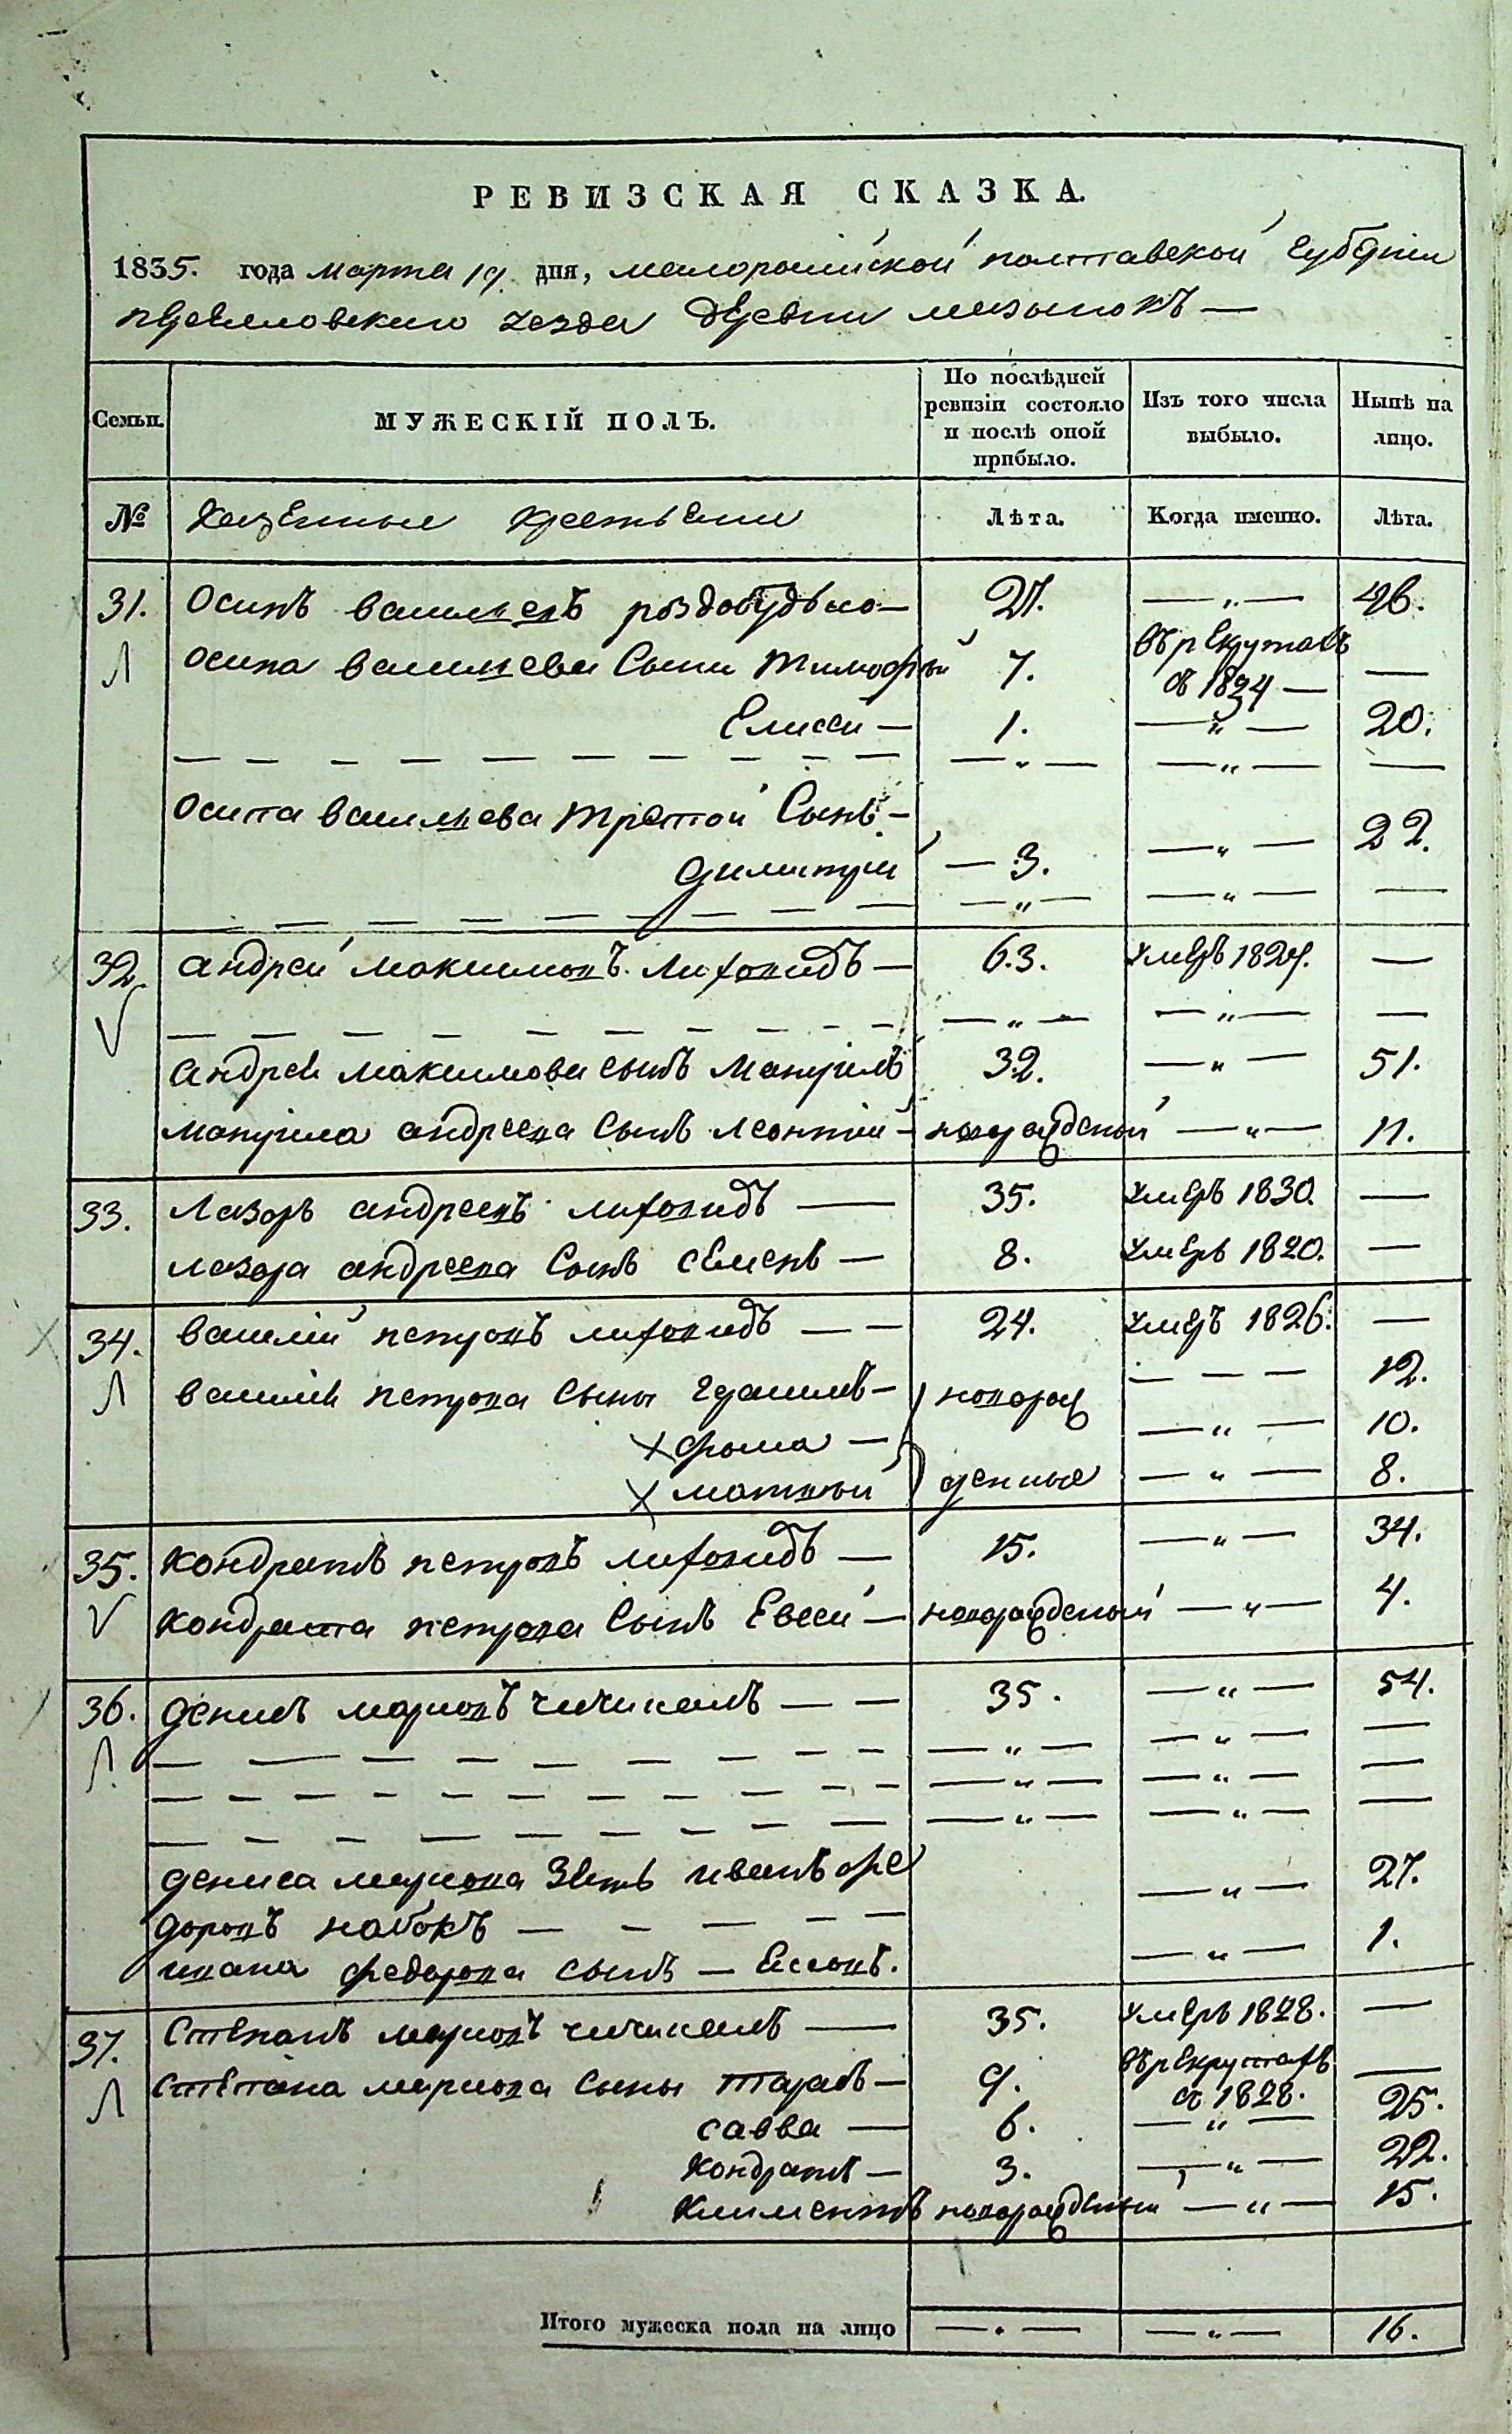 РЕВИЗСКАЯ СКАЗКА.
1835. года марта 19. дня, малоросиискои полтавскои губерніи
переяловского уезда деревни мазынокъ —
Семьи.
МУЖЕСКІЙ ПОЛЪ.
По послѣдней ревизіи состояло и послѣ оной прибыло.
Изъ того числа выбыло.
Нынѣ на лицо.
№ казенные крестьяне Лѣта. Когда именно. Лѣта.
31. Осипъ васильевъ роздобудько — 27. — „ — 46.
Осипа васильева сыны тимофѣи 7. въ рекрутахъ съ 1824 — —
Елисеи — 1. — „ — 20.
— „ — — „ — —
Осипа васильева третои сынъ —
димитріи — 3. — „ — 22.
— „ — — „ — —
32. андреи максимовъ лиховидъ — 63. умеръ 1824. —
— „ — — „ — —
андрея максимова сынъ мануилъ 32. — „ — 51.
мануила андреева сынъ леонтіи — новорожденыи — „ — 11.
33. лазоръ андреевъ лиховидъ — 35. умеръ 1830. —
лазора андреева сынъ семенъ — 8. умеръ 1820. —
34. василіи петровъ лиховидъ — — 24. умеръ 1826. —
василія петрова сыны герасимъ — новорож — — — 12.
фома — — „ — 10.
матвѣи денные — „ — 8.
35. кондратъ петровъ лиховидъ — 15. — „ — 34.
кондрата петрова сынъ Евсеи — новорожденыи — „ — 4.
36. денисъ марковъ чичикалъ — — 35. — „ — 54.
— „ — — „ — —
— „ — — „ — —
— „ — — „ — —
дениса маркова зять иванъ фе
доровъ набокъ — — — — — — „ — 27.
ивана федорова сынъ — — „ — 1.
37. Степанъ марковъ чичикалъ — 35. умеръ 1828. —
степана маркова сыны тарасъ — 9. въ рекрутахъ съ 1828. —
савва — 6. — „ — 25.
кондратъ — 3. — „ — 22.
климентъ новорожденыи — „ — 15.
Итого мужеска пола на лицо — „ — — „ — 16.